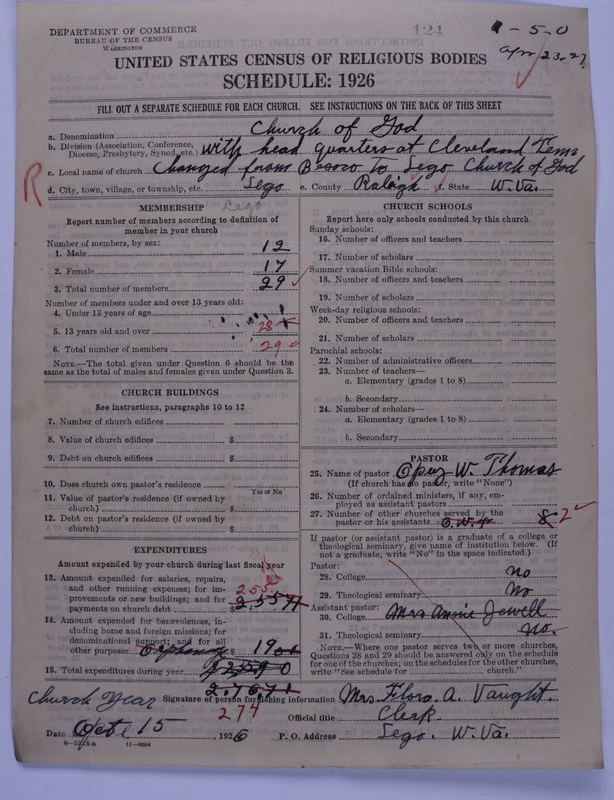 DEPARTMENT OF COMMERCE
BUREAU OF THE CENSUS
WASHINGTON
124
1-5-0
Apr 23-27
UNITED STATES CENSUS OF RELIGIOUS BODIES
SCHEDULE: 1926
FILL OUT A SEPARATE SCHEDULE FOR EACH CHURCH. SEE INSTRUCTIONS ON THE BACK OF THIS SHEET
a. Denomination Church of God
b. Division (Association, Conference, Diocese, Presbytery, Synod, etc.) with head quarters at Cleveland Tenn
c. Local name of church Changed from Besoco To Sego Church of God
R
d. City, town, village, or township, etc. Sego e. County Raleigh f. State W. Va.
Sego
MEMBERSHIP
Report number of members according to definition of
member in your church
Number of members, by sex:
1. Male 12
2. Female 17
3. Total number of members 29
Number of members under and over 13 years old:
4. Under 13 years of age 1
5. 13 years old and over 28
6. Total number of members 29
NOTE.—The total given under Question 6 should be the
same as the total of males and females given under Question 3.
CHURCH BUILDINGS
See instructions, paragraphs 10 to 12
7. Number of church edifices
8. Value of church edifices $
9. Debt on church edifices $
10. Does church own pastor's residence
Yes or No
11. Value of pastor's residence (if owned by
church) $
12. Debt on pastor's residence (if owned by
church) $
EXPENDITURES
Amount expended by your church during last fiscal year
13. Amount expended for salaries, repairs,
and other running expenses; for im-
provements or new buildings; and for
payments on church debt 255
14. Amount expended for benevolences, in-
cluding home and foreign missions; for
denominational support; and for all
other purposes Orphanage $ 19
15. Total expenditures during year
274
CHURCH SCHOOLS
Report here only schools conducted by this church
Sunday schools:
16. Number of officers and teachers
17. Number of scholars
Summer vacation Bible schools:
18. Number of officers and teachers
19. Number of scholars
Week-day religious schools:
20. Number of officers and teachers
21. Number of scholars
Parochial schools:
22. Number of administrative officers
23. Number of teachers—
a. Elementary (grades 1 to 8)
b. Secondary
24. Number of scholars—
a. Elementary (grades 1 to 8)
b. Secondary
PASTOR
25. Name of pastor W. Thomas
(If church has no pastor, write "None")
26. Number of ordained ministers, if any, em-
ployed as assistant pastors
27. Number of other churches served by the
pastor or his assistants 8 2
If pastor (or assistant pastor) is a graduate of a college or
theological seminary, give name of institution below. (If
not a graduate, write "No" in the space indicated.)
Pastor:
28. College No
29. Theological seminary No
Assistant pastor:
30. College Mrs Annie Jewell
31. Theological seminary no.
NOTE.—Where one pastor serves two or more churches,
Questions 28 and 29 should be answered only on the schedule
for one of the churches; on the schedules for the other churches,
write "See schedule for church."
Church Year
Signature of person furnishing information Mrs. Flora. A. Vaught.
Official title Clerk.
Date Oct 15, 1926 P. O. Address Sego. W. Va.
11—9034